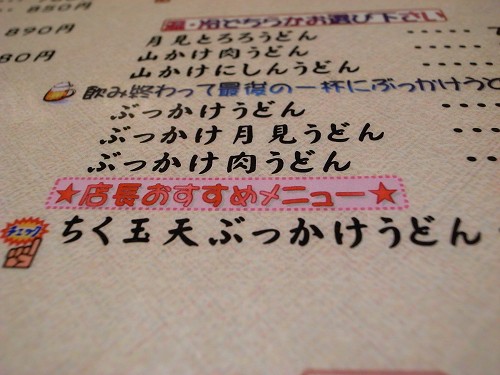 850円
890円
80円
温・冷でちらかお選び下さい
月見とろろうどん
山かけ肉うどん
山かけにしんうどん
飲み終わって最後の一杯にぶっかけうど
ぶっかけうどん
ぶっかけ月見うどん
ぶっかけ肉うどん
★店長おすすめメニュー★
チェック
ちく玉天ぶっかけうどん